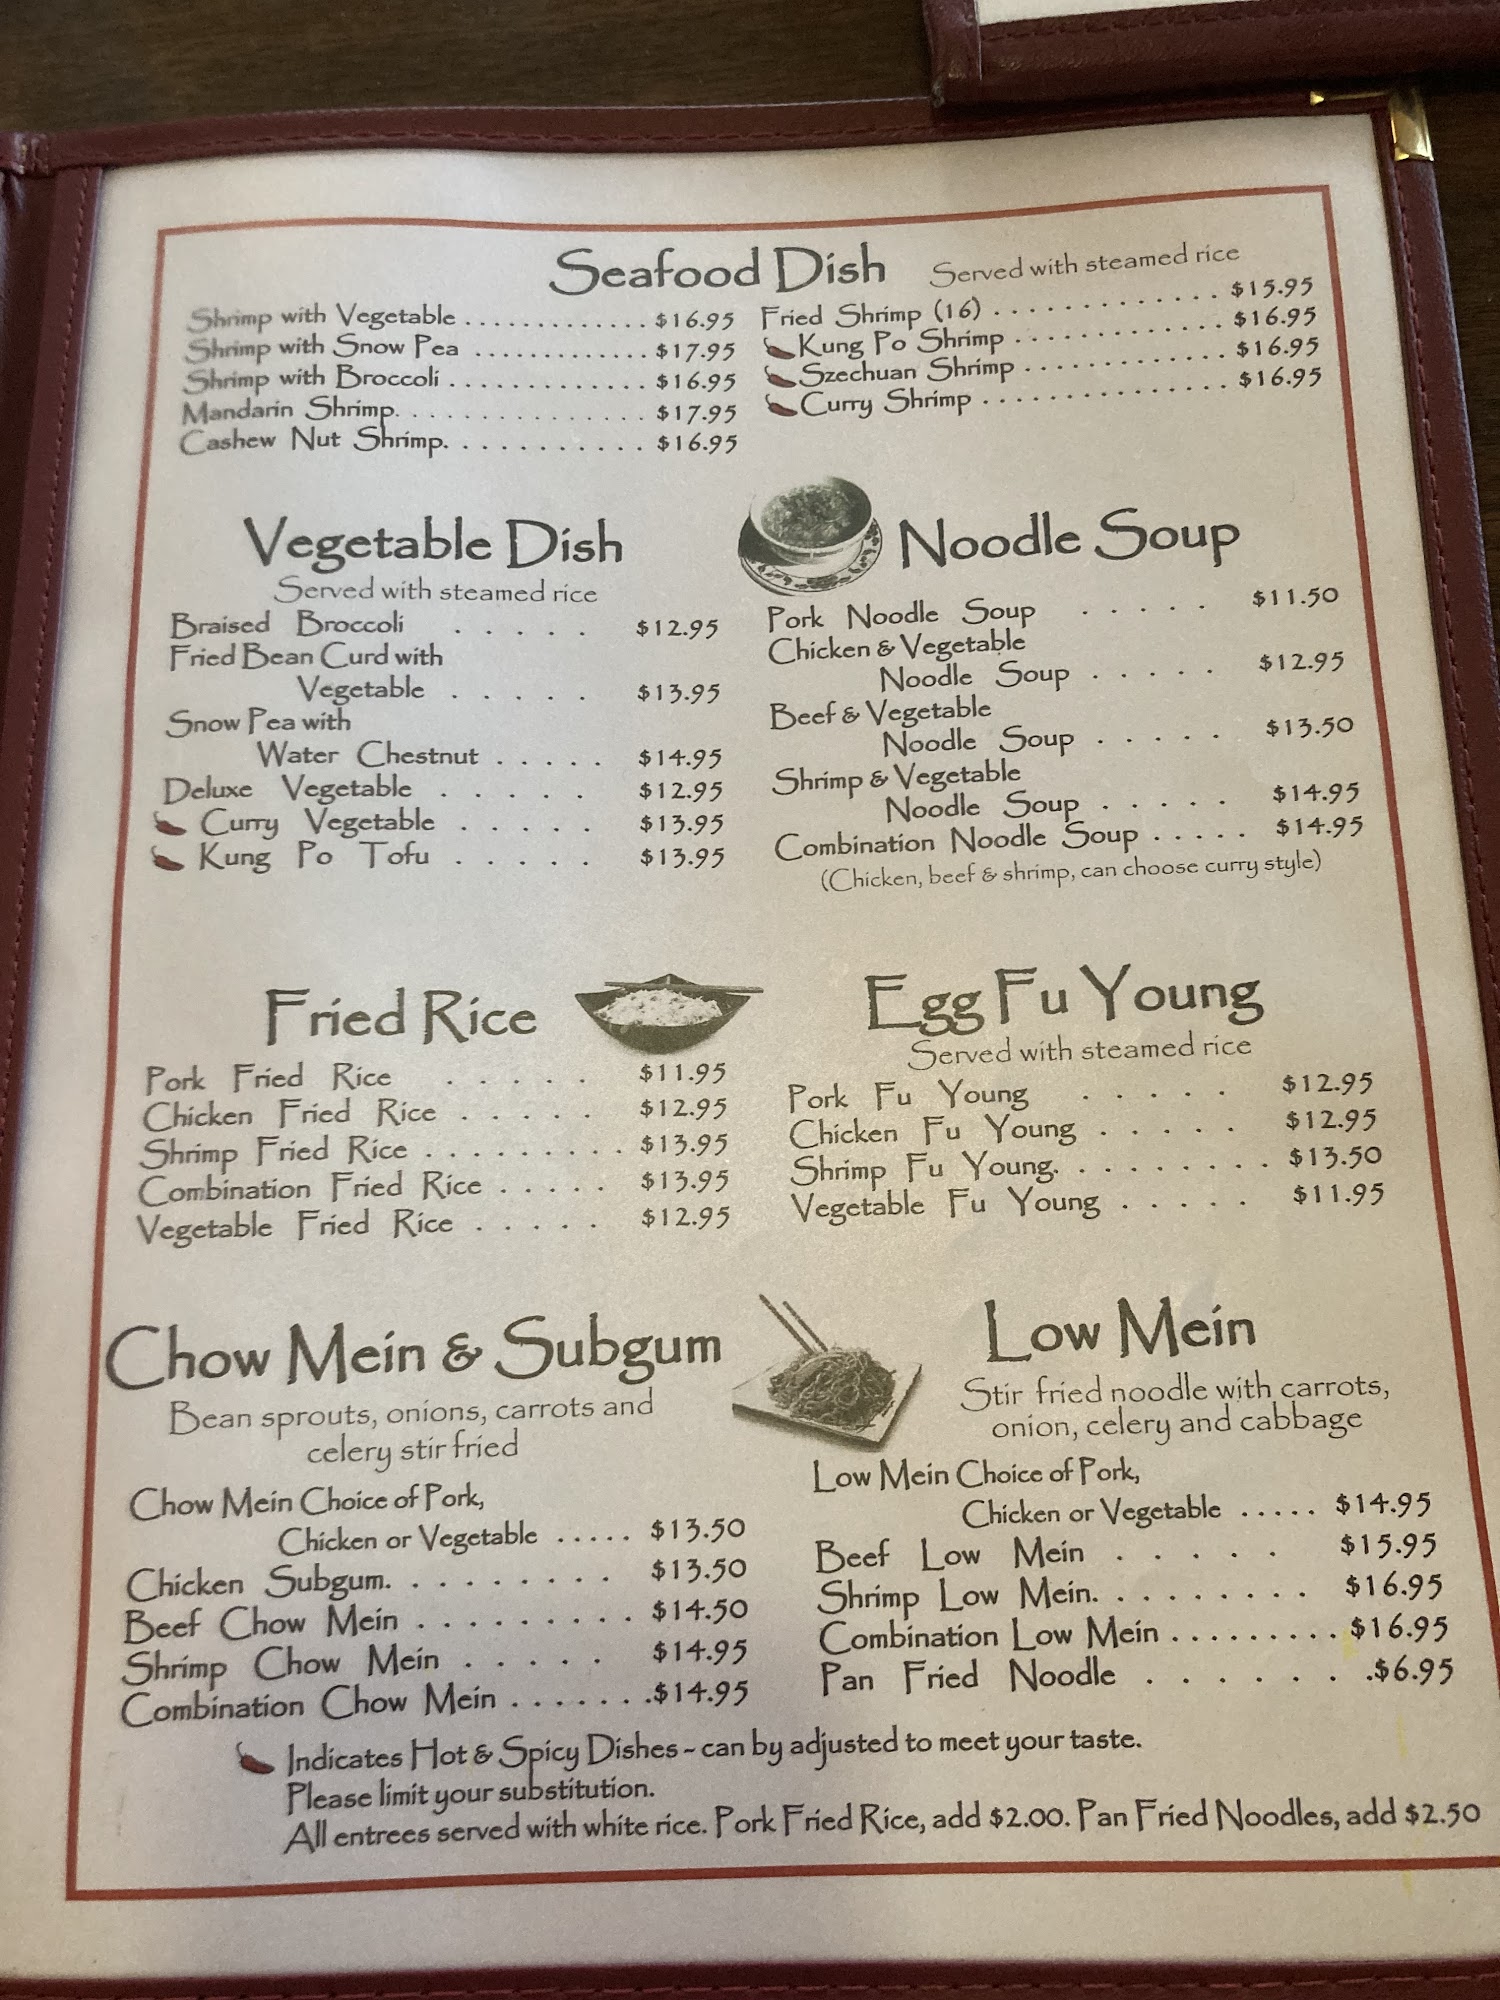 Seafood Dish Served with steamed rice
Shrimp with Vegetable . . . . . . . . . . . . . $16.95
Shrimp with Snow Pea . . . . . . . . . . . . . $17.95
Shrimp with Broccoli . . . . . . . . . . . . . . $16.95
Mandarin Shrimp. . . . . . . . . . . . . . . . $17.95
Cashew Nut Shrimp. . . . . . . . . . . . $16.95
Fried Shrimp (16) . . . . . . . . . . . . $15.95
Kung Po Shrimp . . . . . . . . . . . . $16.95
Szechuan Shrimp . . . . . . . . . . . . $16.95
Curry Shrimp . . . . . . . . . . . . . . $16.95
Vegetable Dish
Served with steamed rice
Braised Broccoli . . . . . $12.95
Fried Bean Curd with
Vegetable . . . . . $13.95
Snow Pea with
Water Chestnut . . . . . $14.95
Deluxe Vegetable . . . . . $12.95
Curry Vegetable . . . . . $13.95
Kung Po Tofu . . . . . $13.95
Noodle Soup
Pork Noodle Soup . . . . . $11.50
Chicken & Vegetable
Noodle Soup . . . . . $12.95
Beef & Vegetable
Noodle Soup . . . . . $13.50
Shrimp & Vegetable
Noodle Soup . . . . . $14.95
Combination Noodle Soup . . . . . $14.95
(Chicken, beef & shrimp, can choose curry style)
Fried Rice
Pork Fried Rice . . . . . $11.95
Chicken Fried Rice . . . . . $12.95
Shrimp Fried Rice . . . . . . . . . $13.95
Combination Fried Rice . . . . . $13.95
Vegetable Fried Rice . . . . . $12.95
Egg Fu Young
Served with steamed rice
Pork Fu Young . . . . . $12.95
Chicken Fu Young . . . . . $12.95
Shrimp Fu Young. . . . . . . . . $13.50
Vegetable Fu Young . . . . . $11.95
Chow Mein & Subgum
Bean sprouts, onions, carrots and
celery stir fried
Chow Mein Choice of Pork,
Chicken or Vegetable . . . . . $13.50
Chicken Subgum. . . . . . . . . $13.50
Beef Chow Mein . . . . . . . . . $14.50
Shrimp Chow Mein . . . . . $14.95
Combination Chow Mein . . . . . . .$14.95
Low Mein
Stir fried noodle with carrots,
onion, celery and cabbage
Low Mein Choice of Pork,
Chicken or Vegetable . . . . . $14.95
Beef Low Mein . . . . . $15.95
Shrimp Low Mein. . . . . . . . . $16.95
Combination Low Mein . . . . . . . . . $16.95
Pan Fried Noodle . . . . . . .$6.95
Indicates Hot & Spicy Dishes - can by adjusted to meet your taste.
Please limit your substitution.
All entrees served with white rice. Pork Fried Rice, add $2.00. Pan Fried Noodles, add $2.50